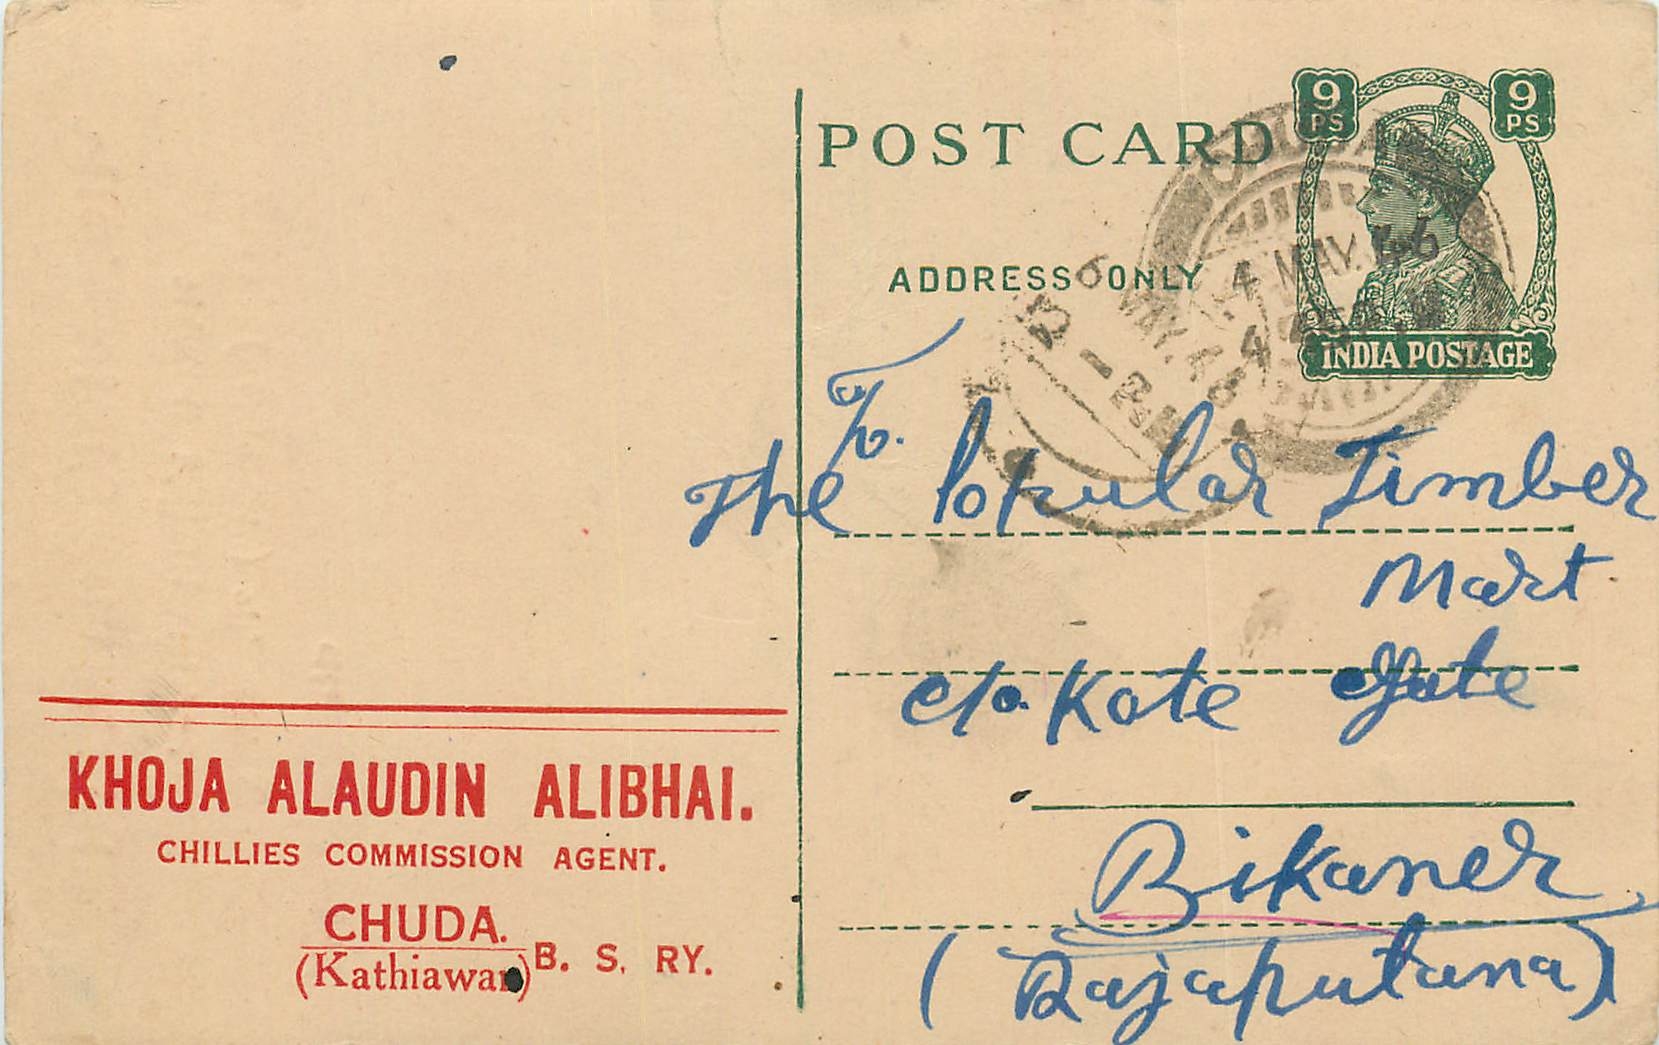 POST CARD
9 PS
9 PS
ADDRESS ONLY
INDIA POSTAGE
CHUDA
4 MAY. 46
6 MAY. 46
To.
The Popular Timber
Mart
c/o. Kote Gate
Bikaner
(Rajaputana)
KHOJA ALAUDIN ALIBHAI.
CHILLIES COMMISSION AGENT.
CHUDA.
(Kathiawar) B. S. RY.